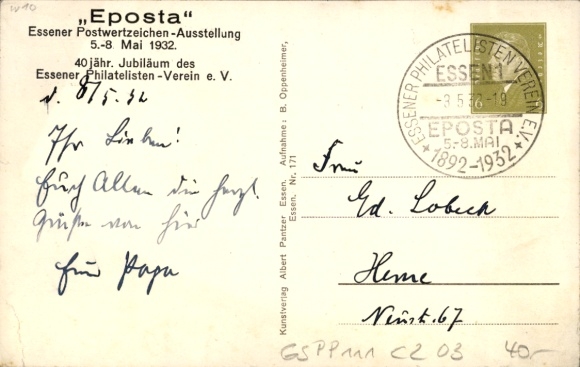 w10
„Eposta“
Essener Postwertzeichen-Ausstellung
5.-8 Mai 1932.
40 jähr. Jubiläum des
Essener Philatelisten-Verein e. V.
d. 8/5.32
Ihr Lieben!
Euch Allen die herzl.
Grüße von hier
Euer Papa
Kunstverlag Albert Pantzer Essen. Aufnahme: B. Oppenheimer,
Essen. Nr. 171
ESSENER PHILATELISTEN VEREIN E.V.
ESSEN 1
-3.5.32.-19
EPOSTA
5.-8.MAI
* 1892-1932 *
6
Frau
Ed. Lobeck
Herne
Neustr. 67
GSPP111 C2 03
40,-